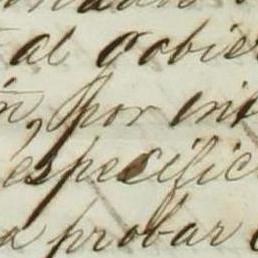 al Gobie
n, por int
especific
a probar